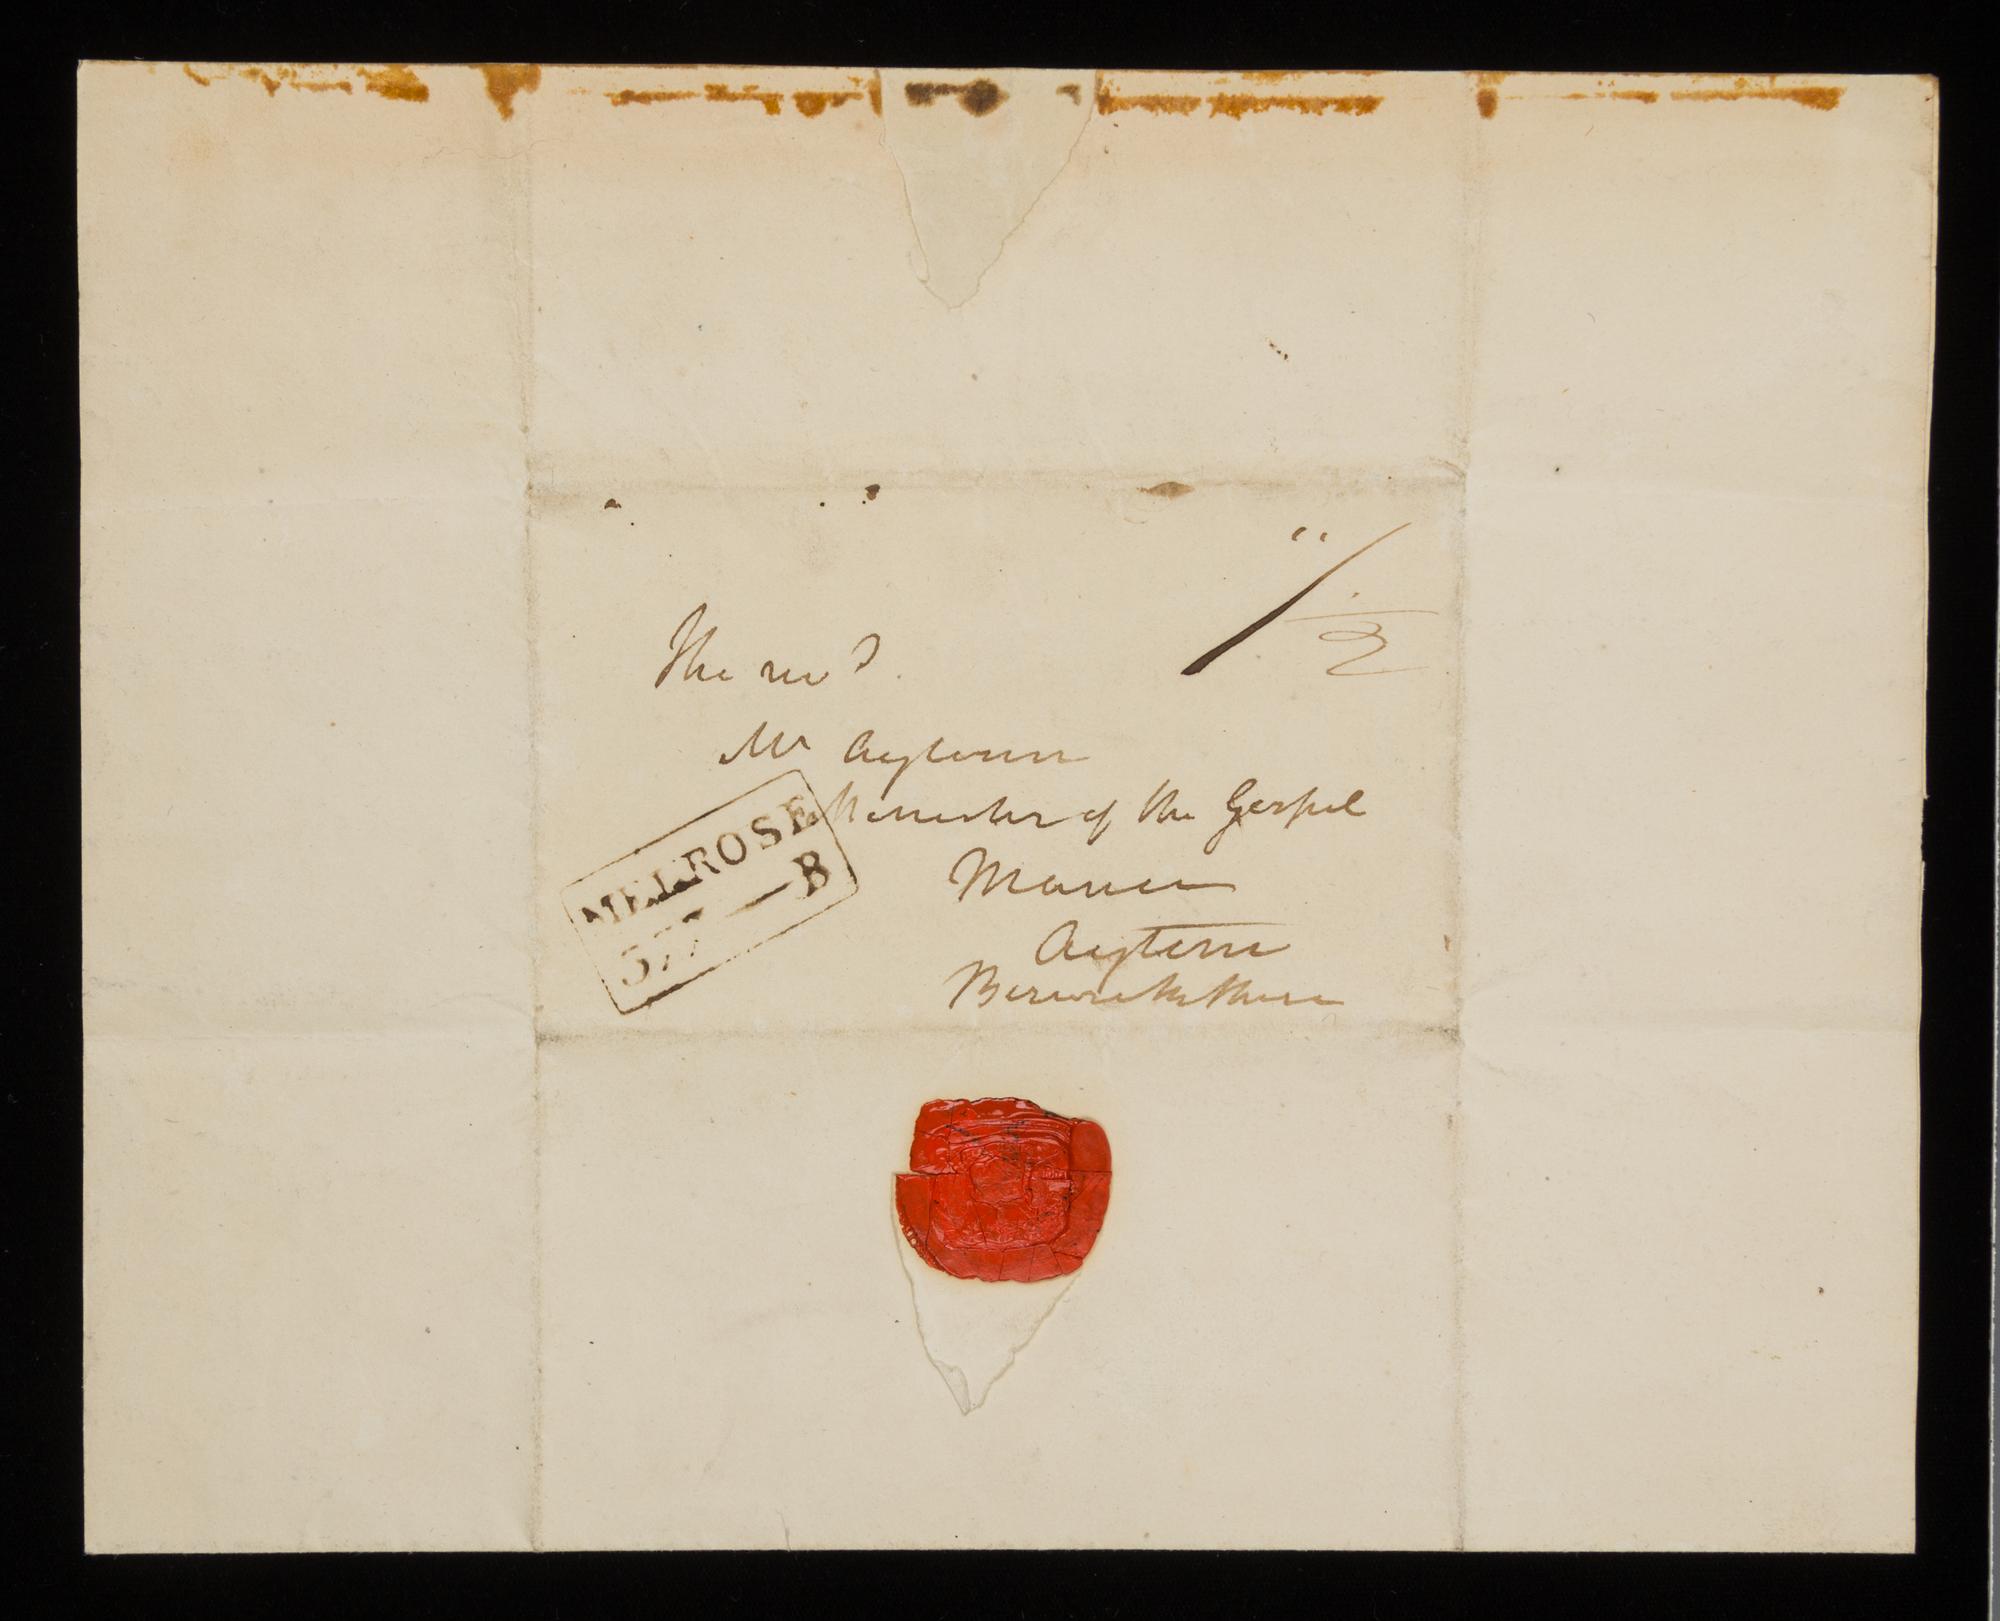 The revd.
Mr Aytoun
Minister of the Gospel
Manse
Aytoun
Berwickshire
MELROSE
377—B
1/2